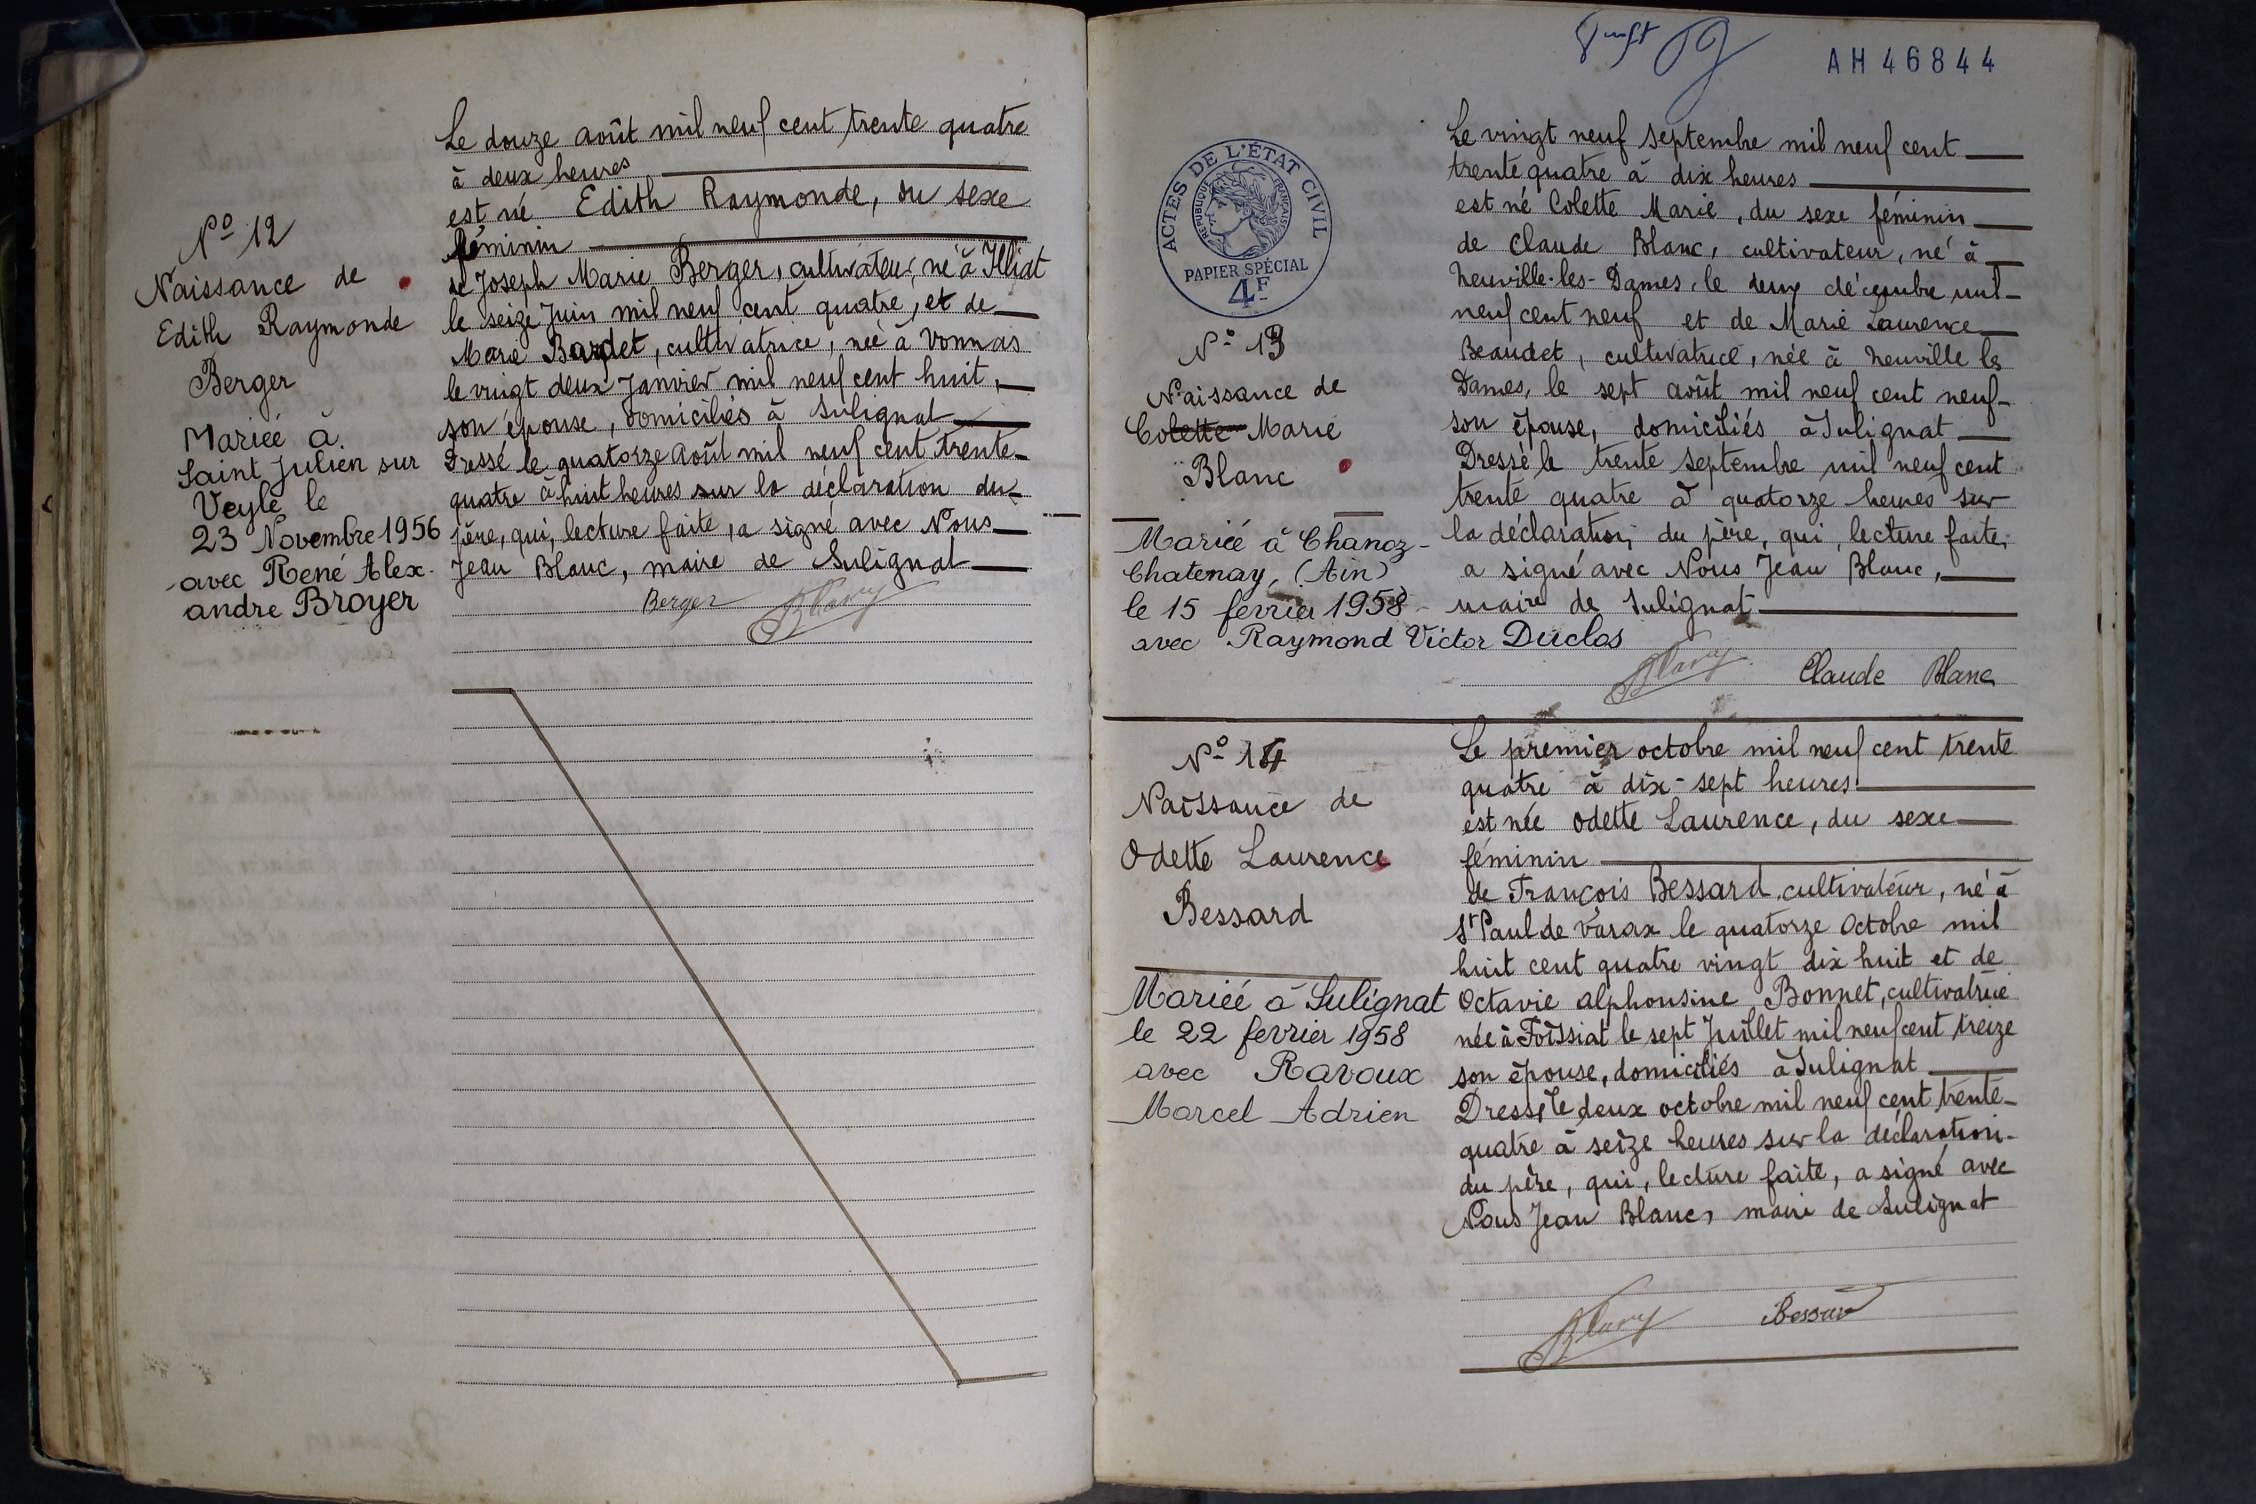 Le douze août mil neuf cent trente quatre
à deux heures
est né Edith Raymonde, du sexe
féminin
de Joseph Marie Berger, cultivateur, né à Illiat
le seize Juin mil neuf cent quatre, et de
Marie Bardet, cultivatrice, née à Vonnas
le vingt deux Janvier mil neuf cent huit,
son épouse, domiciliés à Sulignat
Dressé le quatorze Août mil neuf cent trente-
quatre à huit heures sur la déclaration du
père, qui, lecture faite, a signé avec Nous
Jean Blanc, maire de Sulignat
Berger
N° 12
Naissance de
Edith Raymonde
Berger
Mariée à
Saint Julien sur
Veyle le
23 Novembre 1956
avec René Alex-
andre Broyer
AH 46844
ACTES DE L'ÉTAT CIVIL
RÉPUBLIQUE FRANÇAISE
PAPIER SPÉCIAL
4F
N° 13
Naissance de
Colette Marie
Blanc
Mariée à Chanoz-
Chatenay, (Ain)
le 15 février 1958
avec Raymond Victor Duclos
Le vingt neuf septembre mil neuf cent
trente quatre à dix heures
est né Colette Marie, du sexe féminin
de Claude Blanc, cultivateur, né à
Neuville-les-Dames, le deux décembre mil
neuf cent neuf et de Marie Laurence
Beaudet, cultivatrice, née à Neuville les
Dames, le sept août mil neuf cent neuf-
son épouse, domiciliés à Sulignat
Dressé le trente septembre mil neuf cent
trente quatre à quatorze heures sur
la déclaration du père, qui, lecture faite,
a signé avec Nous Jean Blanc,
maire de Sulignat
Claude Blanc
N° 14
Naissance de
Odette Laurence
Bessard
Mariéé à Sulignat
le 22 fevrier 1958
avec Ravoux
Marcel Adrien
Le premier octobre mil neuf cent trente
quatre à dix-sept heures
est née Odette Laurence, du sexe
féminin
de François Bessard, cultivateur, né à
St Paul de Varax le quatorze Octobre mil
huit cent quatre vingt dix huit et de
Octavie Alphonsine Bonnet, cultivatrice
née à Foissiat le sept Juillet mil neuf cent treize
son épouse, domiciliés à Sulignat
Dressé le deux octobre mil neuf cent trente-
quatre à seize heures sur la déclaration-
du père, qui, lecture faite, a signé avec
Nous Jean Blanc, maire de Sulignat
Bessard